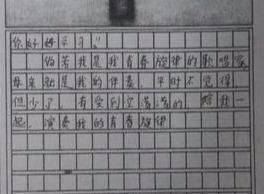 你好好学习。"
倘若我是我青春旋律的歌唱家
母亲就是我的伴奏，平时不觉得
但少了，有实到空荡荡的，陪我一
起，演奏我的青春旋律